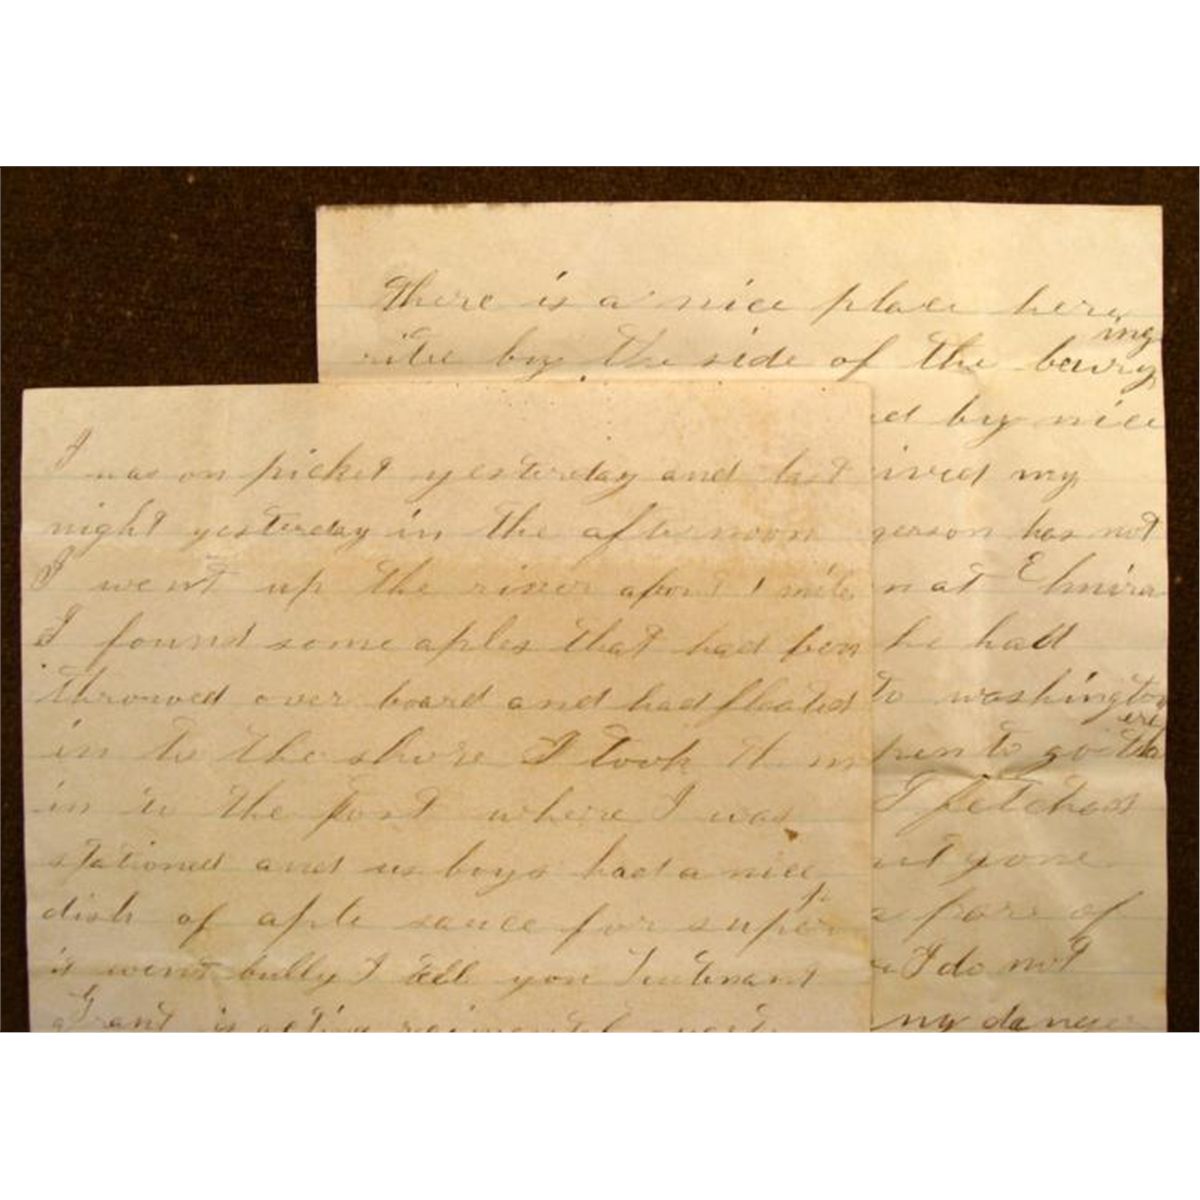 there is a nice place here
rite by the side of the burying
ed by nice
ived my
person has not
n at Elmira
he had
to washington
pen to go there
I fetched
ut gone
a pare of
I do not
ny danger
I was on picket yesterday and last
night yesterday in the afternoon
I went up the river about 1 mile
I found some aples that had ben
throwed over board and had floated
in to the shore I took them
in to the post where I was
stationed and us boys had a nice
dish of aple sauce for super
it went bully I tell you Lieutenant
Grant is acting regimental